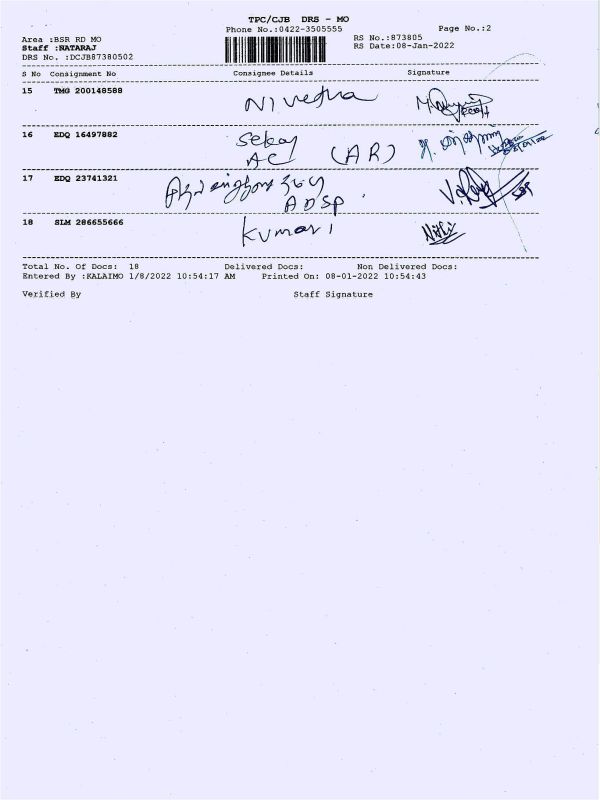 TPC/CJB DRS - MO
Phone No.:0422-3505555
Page No.:2
Area :BSR RD MO
RS No.:873805
Staff :NATARAJ
RS Date:08-Jan-2022
DRS No. :DCJB87380502
S No Consignment No Consignee Details Signature
15 TMG 200148588 Nivetha
16 EDQ 16497882 Sekar
AC (AR)
17 EDQ 23741321
ADSP
18 SLM 286655666 Kumari
Total No. Of Docs: 18 Delivered Docs: Non Delivered Docs:
Entered By :KALAIMO 1/8/2022 10:54:17 AM Printed On: 08-01-2022 10:54:43
Verified By Staff Signature